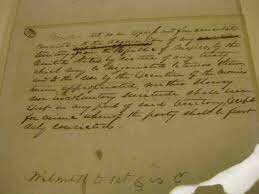 Provided, That, as an express and fundamental
condition to the acquisition of any
territory from the Republic of Mexico by the
United States, by virtue of any treaty
which may be negotiated between them,
and to the use by the Executive of the moneys
herein appropriated, neither slavery
nor involuntary servitude shall ever
exist in any part of said territory, except
for crime whereof the party shall be first
duly convicted.
Wilmot